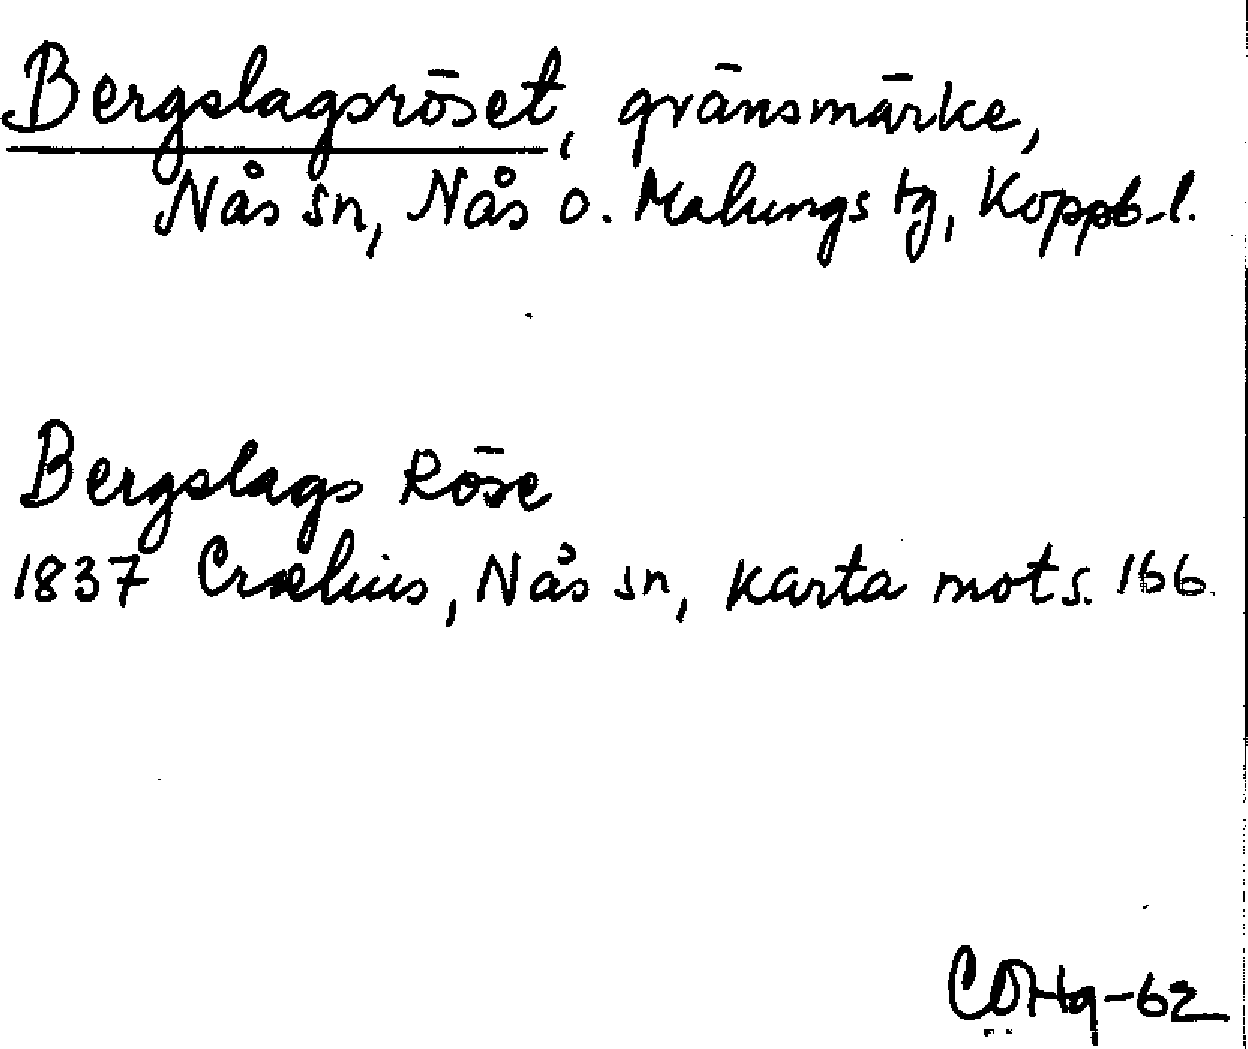 Bergslagsröset, gränsmärke,
Nås sn, Nås o. Malungs tg, Koppb. l.
Bergslags Röse
1837 Crælius, Nås sn, karta mot s. 166.